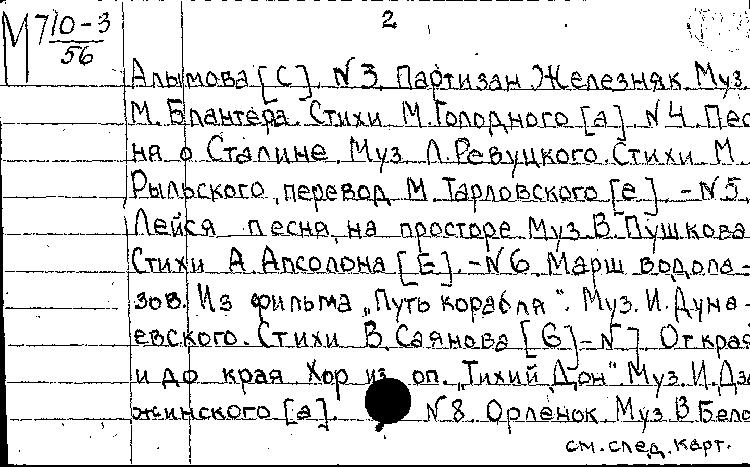 2
М 710-3
56
Алымова [С]. N3. Партизан Железняк. Муз.
М. Блантера. Стихи М. Голодного [а]. N4. Пес
ня о Сталине. Муз. Л. Ревуцкого. Стихи М.
Рыльского, перевод М. Тарловского [е]. - N5.
Лейся песня, на просторе. Муз. В. Пушкова
Стихи А. Апсолона [Е]. - N6. Марш водола-
зов. Из фильма „Путь корабля". Муз. И. Дуна-
евского. Стихи В. Саянова [G] - N7. От края
и до края. Хор из оп. „Тихий Дон". Муз. И. Дзе
жинского [а]. N8. Орленок. Муз. В. Бело
см. след. карт.